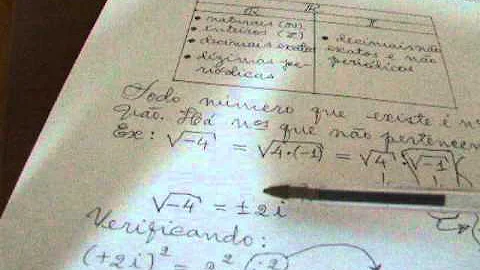 R
• naturais (N)
• inteiros (Z)
• decimais exatos
• dízimas pe-
riódicas
I
• decimais não
exatos e não
periódicos
Todo número que existe é
Não. Há nºs que não pertencem
Ex: √-4 = √4·(-1) = √4 · √-1
√-4 = ±2i
Verificando:
(+2i)² = 2²